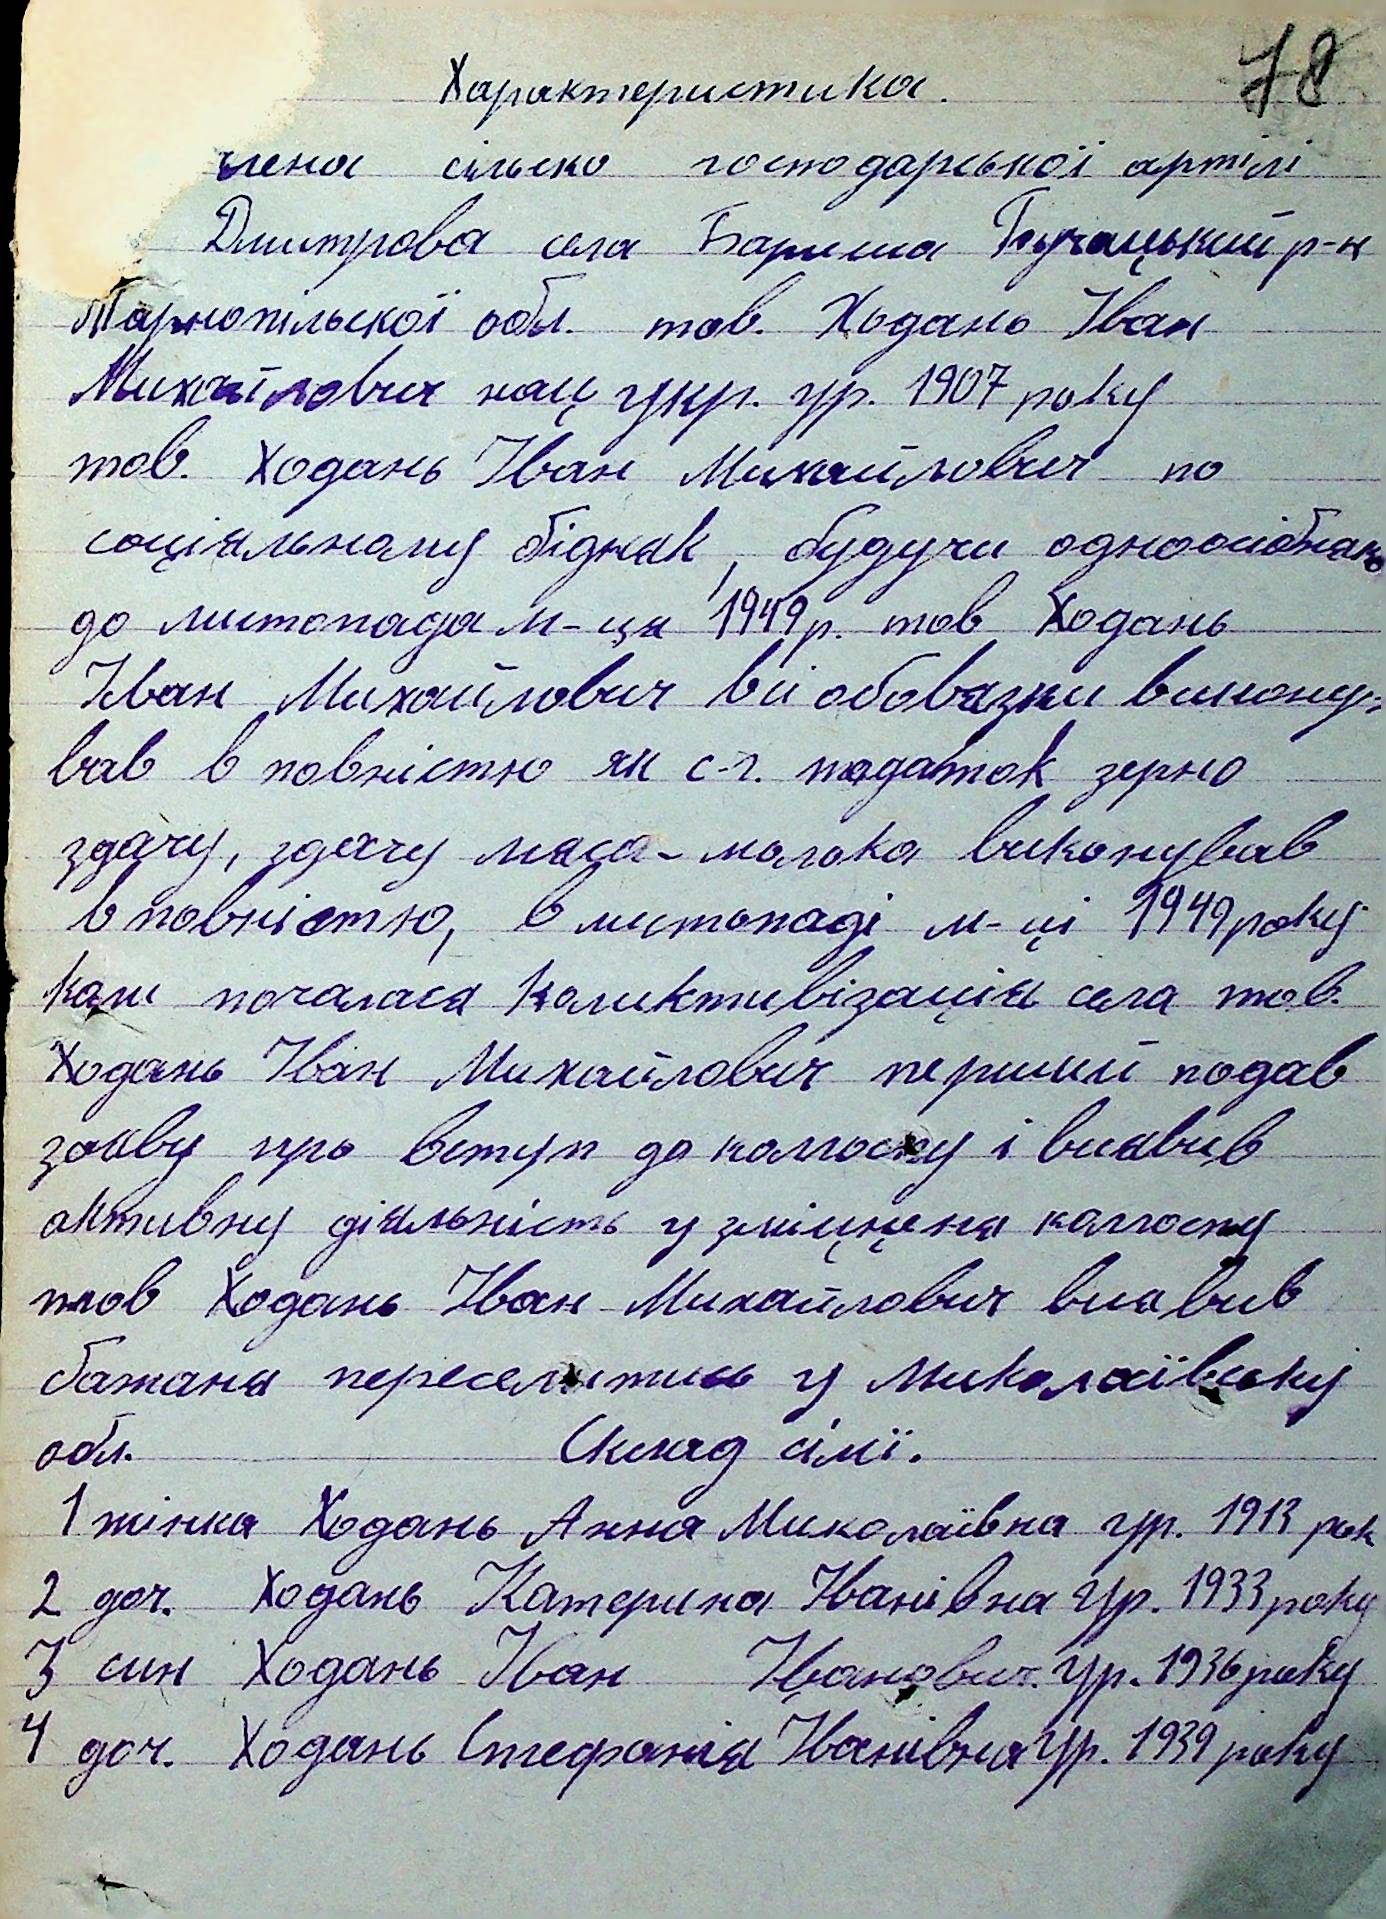 78
Характеристика.
члена сільско господарської артілі
Дмитрова села Бариша Бучацький р-н
Тарнопільскої обл. тов. Ходань Іван
Михайлович нац укр. ур. 1907 року
тов. Ходань Іван Михайлович по
соціяльному бідняк, будучи одноосібняком
до листопада м-ця 1949 р. тов Ходань
Іван Михайлович всі обовязки виконү-
вав в повністю як с-г. податок зерно
здачу, здачу мяса-молока виконував
в повністю, в листопаді м-ці 1949 року
коли почалася коликтивізація села тов.
Ходань Іван Михайлович перший подав
заяву про вступ до колгоспу і виявив
активну діяльність у зміцненя колгоспу
тов Ходань Іван Михайлович виявив
бажаня переселитись у Миколаївську
обл. Склад сімї.
1 жінка Ходань Анна Миколаївна ур. 1913 рок
2 доч. Ходань Катерина Іванівна ур. 1933 року
3 син Ходань Іван Іванович ур. 1936 року
4 доч. Ходань Стефанія Іванівна ур. 1939 року